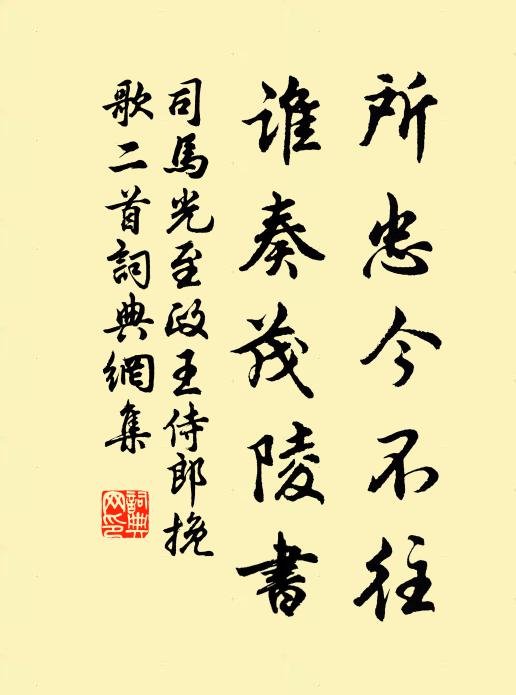 所忠今不往
谁奏茂陵書
司馬光至政王侍郎挽
歌二首詞典網集
詞典网印